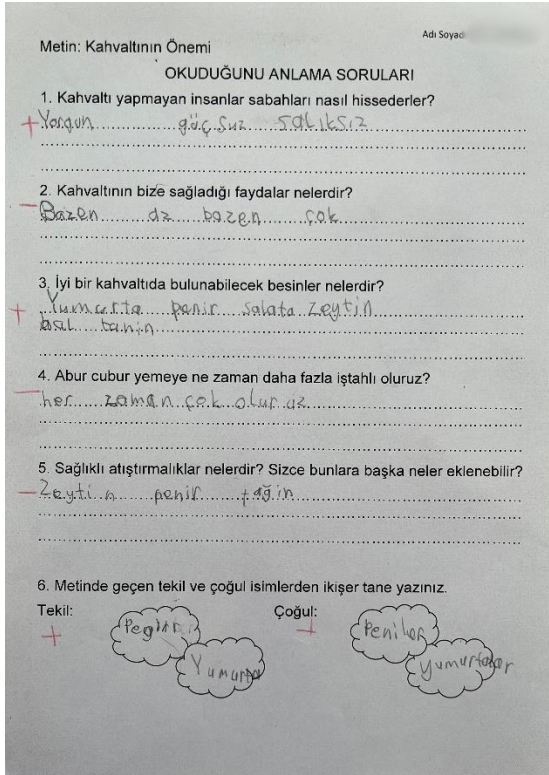 Adı Soyad
Metin: Kahvaltının Önemi
OKUDUĞUNU ANLAMA SORULARI
1. Kahvaltı yapmayan insanlar sabahları nasıl hissederler?
+ Yorgun güçsuz salıksız
2. Kahvaltının bize sağladığı faydalar nelerdir?
- Bazen dz bazen çok
3. İyi bir kahvaltıda bulunabilecek besinler nelerdir?
+ Yumurta penir salata zeytin
bal tanin
4. Abur cubur yemeye ne zaman daha fazla iştahlı oluruz?
- her zaman çok olur uz
5. Sağlıklı atıştırmalıklar nelerdir? Sizce bunlara başka neler eklenebilir?
- Zeytin penir tağin
6. Metinde geçen tekil ve çoğul isimlerden ikişer tane yazınız.
Tekil: Çoğul:
+ +
Yumurta